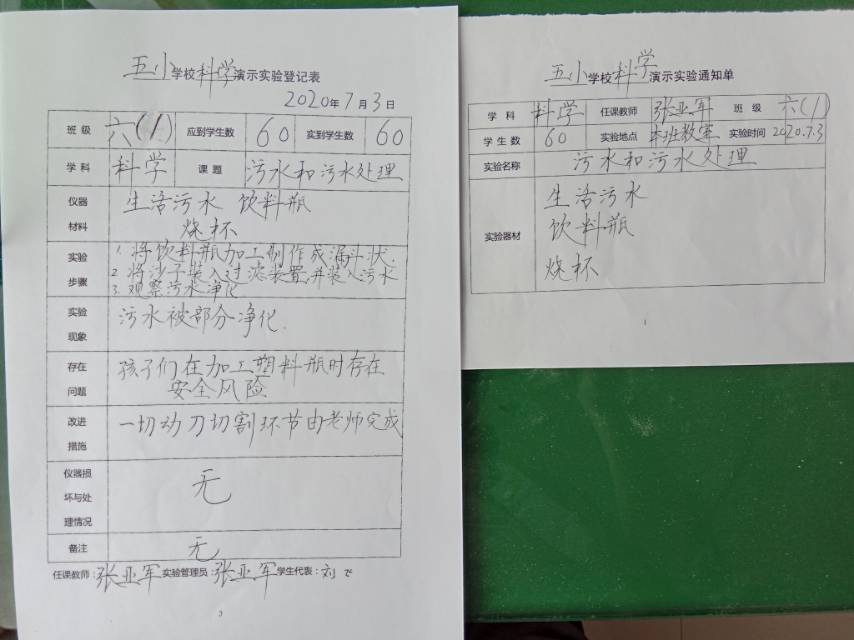 五小学校科学演示实验登记表
2020年7月3日
班级 六(1) 应到学生数 60 实到学生数 60
学科 科学 课题 污水和污水处理
仪器材料 生活污水 饮料瓶
烧杯
实验步骤 1.将饮料瓶加工制作成漏斗状.
2.将沙子装入过滤装置,并装入污水
3.观察污水净化
实验现象 污水被部分净化.
存在问题 孩子们在加工塑料瓶时存在
安全风险
改进措施 一切动刀切割环节由老师完成
仪器损坏与处理情况 无
备注 无
任课教师:张亚军 实验管理员:张亚军 学生代表:刘
3
五小学校科学演示实验通知单
学科 科学 任课教师 张亚军 班级 六(1)
学生数 60 实验地点 本班教室 实验时间 2020.7.3
实验名称 污水和污水处理
实验器材 生活污水
饮料瓶
烧杯
1